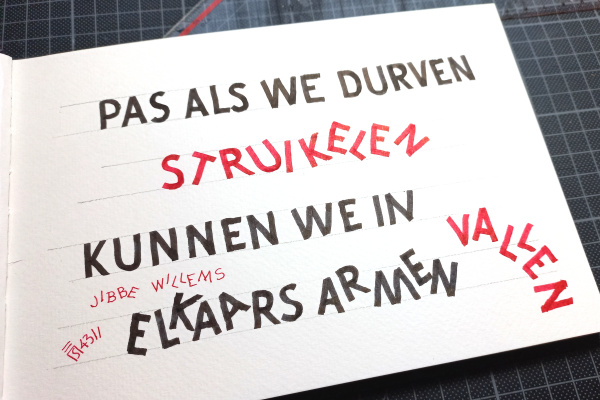 PAS ALS WE DURVEN
STRUIKELEN
KUNNEN WE IN
ELKAARS ARMEN VALLEN
JIBBE WILLEMS